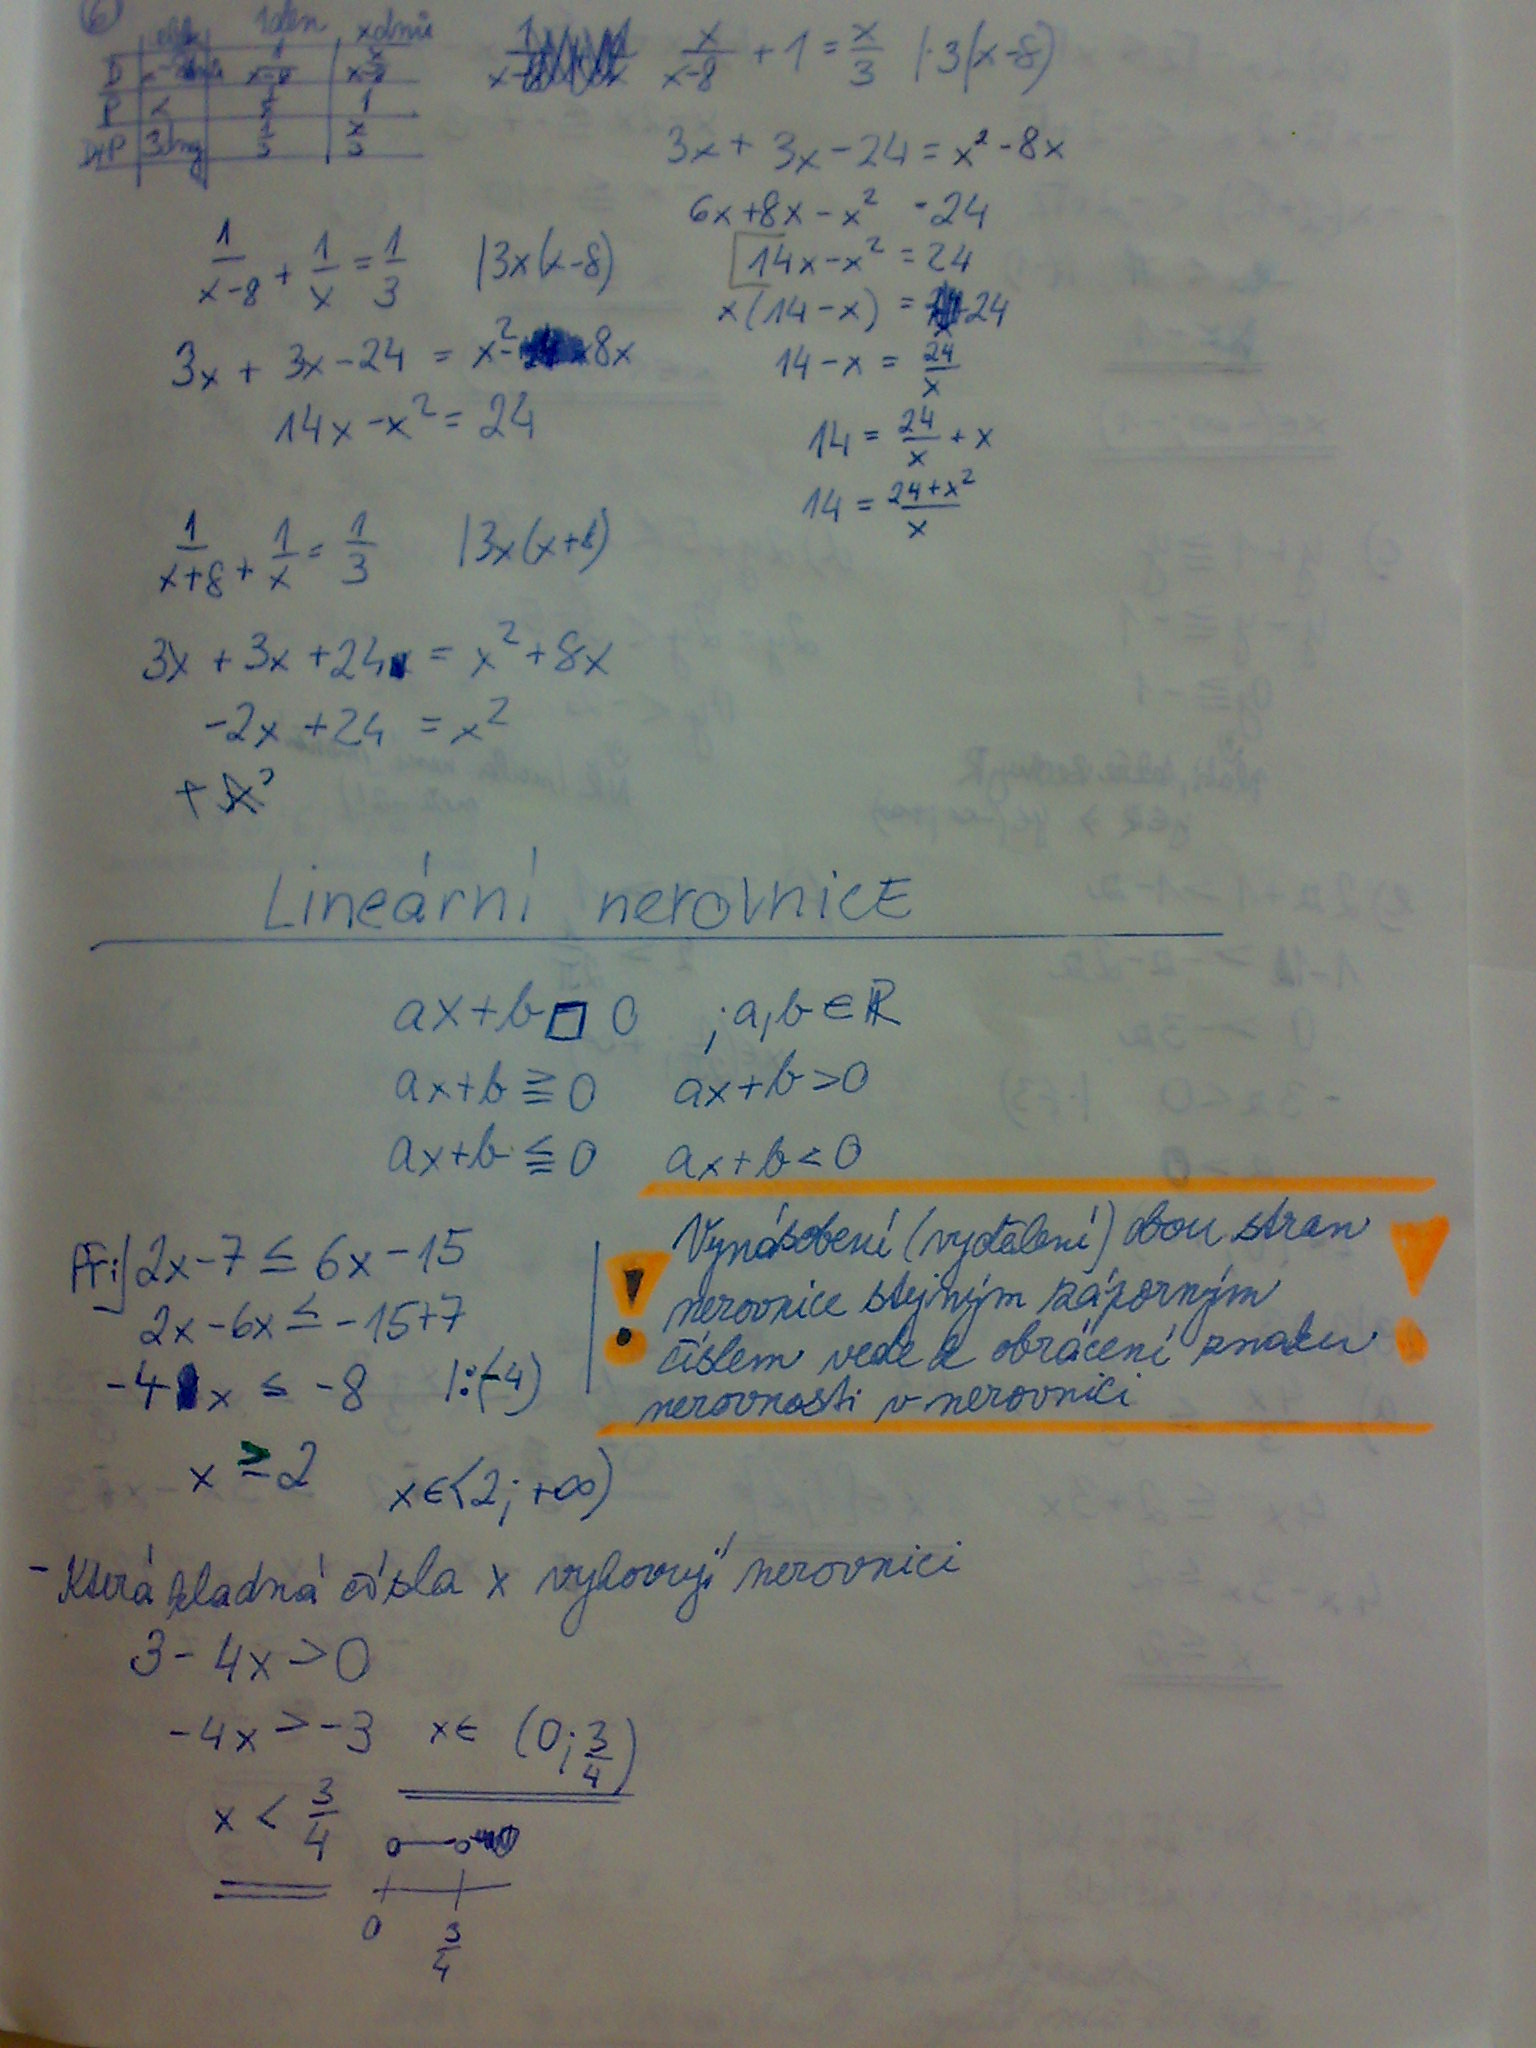 6
celk 1den xdnů
D x-8dnů 1/x-8 x/x-8
P x 1/x 1
D+P 3dny 1/3 x/3
x/x-8 + 1 = x/3 |·3(x-8)
3x + 3x - 24 = x² - 8x
6x + 8x - x² = 24
14x - x² = 24
x(14-x) = 24
14 - x = 24/x
14 = 24/x + x
14 = 24+x²/x
1/x-8 + 1/x = 1/3 |3x(x-8)
3x + 3x - 24 = x² - 8x
14x - x² = 24
1/x+8 + 1/x = 1/3 |3x(x+8)
3x + 3x + 24 = x² + 8x
-2x + 24 = x²
Lineární nerovnice
ax+b □ 0 ; a,b ∈ ℝ
ax+b ≧ 0 ax+b > 0
ax+b ≦ 0 ax+b < 0
Př:| 2x-7 ≤ 6x-15
2x-6x ≤ -15+7
-4x ≤ -8 |:(-4)
x ≥ 2 x∈<2; +∞)
! Vynásobení (vydělení) obou stran !
nerovnice stejným záporným
číslem vede k obrácení znaku
nerovnosti v nerovnici
- Která kladná čísla x vyhovují nerovnici
3 - 4x > 0
-4x > -3 x∈ (0; 3/4)
x < 3/4
0 3/4